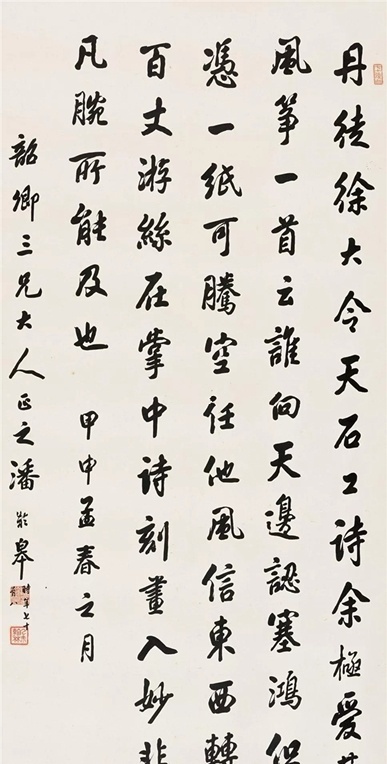 丹徒徐大令天石工詩余極爱其
風筝一首云誰向天邊認塞鴻但
憑一紙可騰空任他風信東西轉
百丈游絲在掌中詩刻畫入妙非
凡腕所能及也 甲申孟春之月
韶卿三兄大人正之潘齡皋 時年七十有八